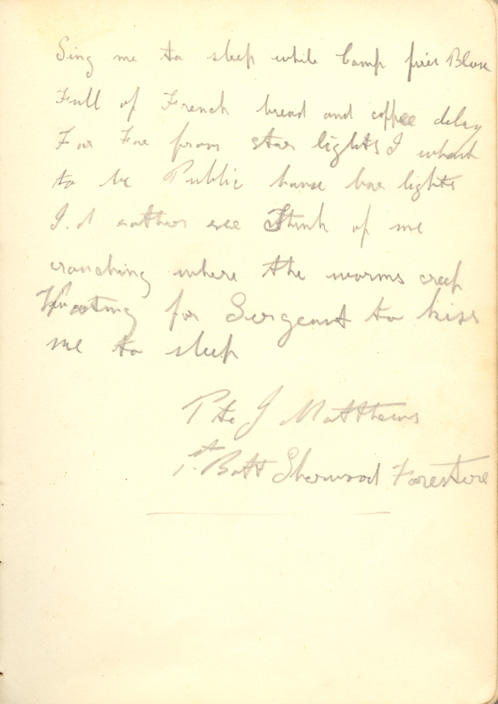 Sing me to sleep while Camp fires Blow
Full of French bread and coffee delay
Far Far from star lights I whant
to be Public house bar lights
I. d rather see Think of me
crouching where the worms creep
Waiting for Sergeant to kiss
me to sleep
Pte J Matthews
1st Batt Sherwood Foresters